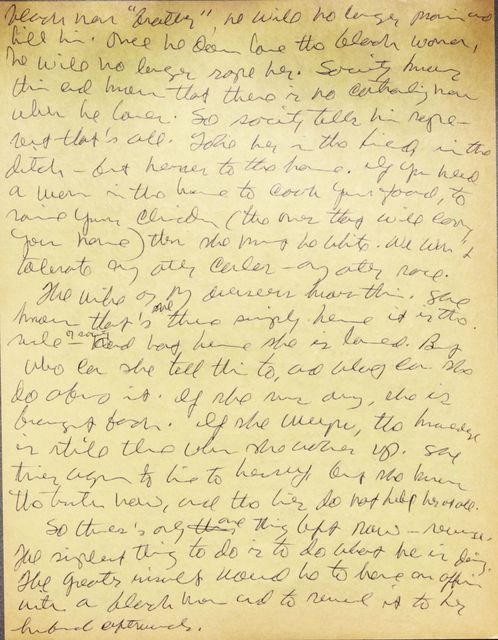 black man "brother" he will no longer poison and
kill him. Once he does love the black woman,
he will no longer rape her. Society knows
this and knows that there is no controlling man
when he loves. So society tells him
that's all. Take her in the field, in the
ditch - but never to the home. If you need
a woman in the house to cook your food, to
raise your children (the ones that will carry
your name) then she must be white. We won't
tolerate any other color - any other race.
The wife of my overseer knows this. She
knows that she's there simply because it is the
rule - of society and not because she is loved. But
who can she tell this to, and what can she
do about it. If she runs away, she is
brought back. If she weeps, the
is still there when she wakes up. She
tries again to lie to herself but she knows
the truth now, and the lies do not help her at all.
So there's only one thing left now - revenge.
The simplest thing to do is to do what he is doing.
The greatest insult would be to have an affair
with a black man and to reveal it to her
husband afterwards.